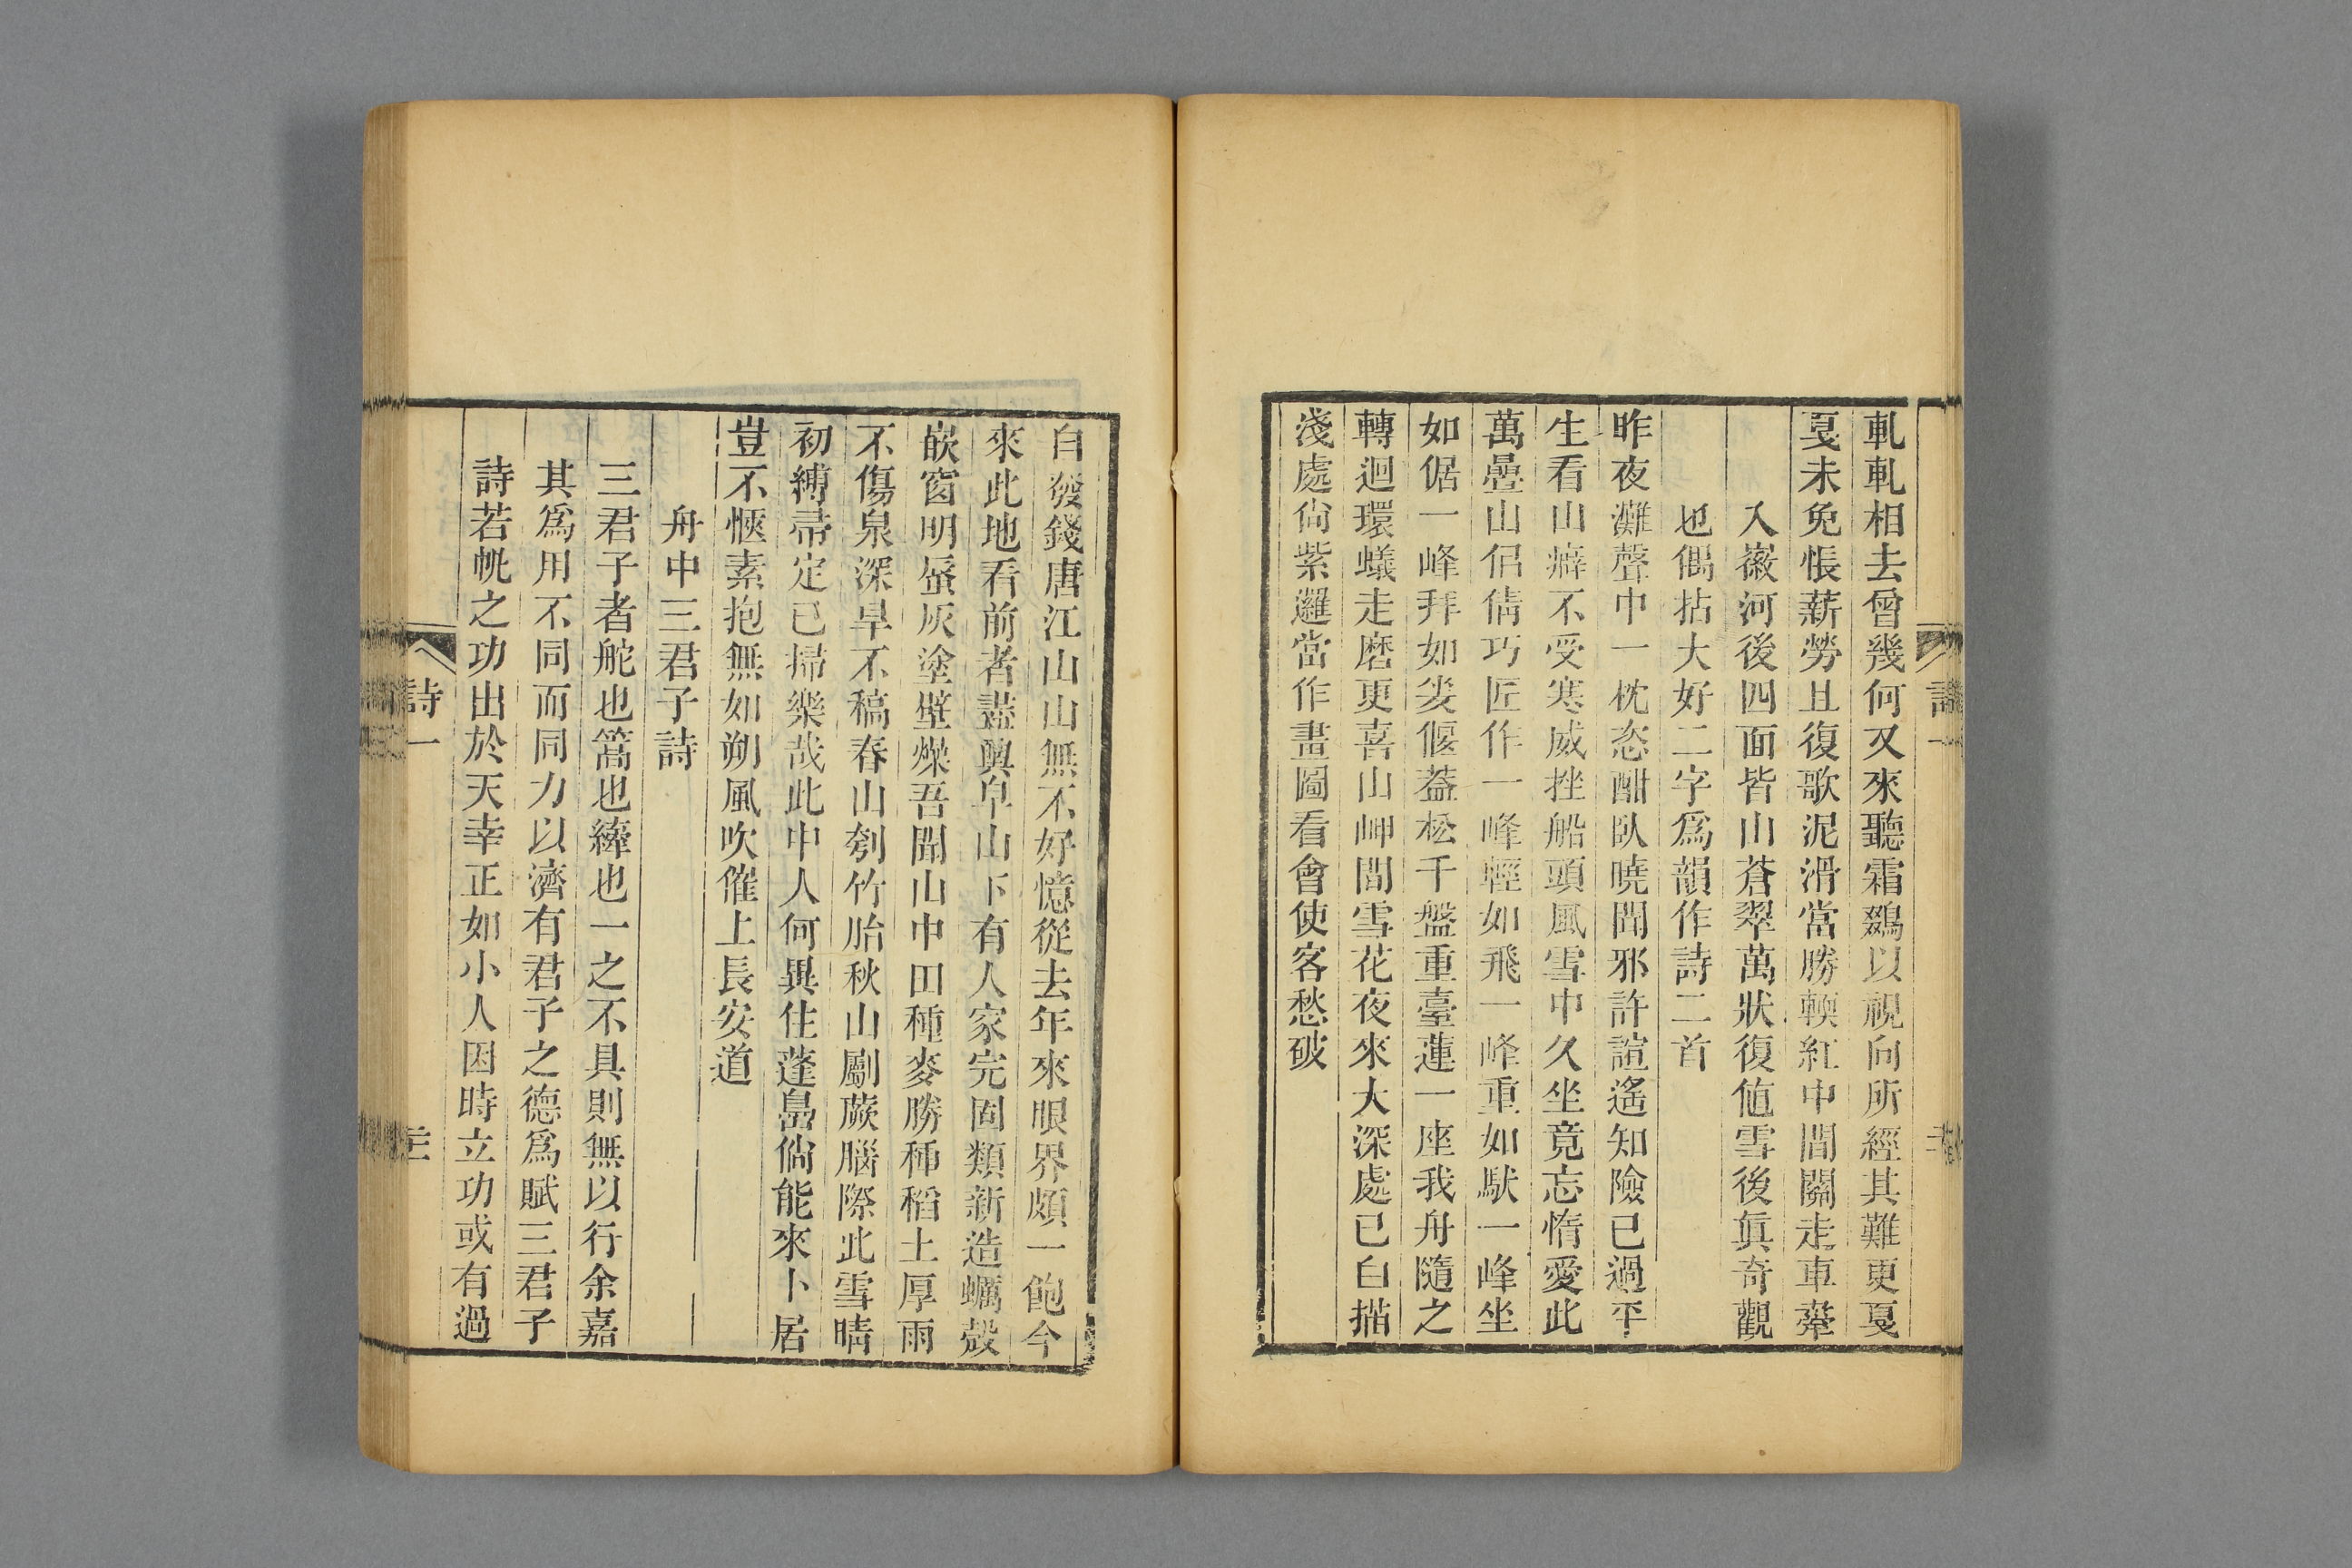 詩一
軋軋相去曾幾何又來聽霜鷄以視向所經其難更戛
戛未免悵薪勞且復歌泥滑當勝輭紅中間關走車舝
入嶶河後四面皆山蒼翠萬狀復値雪後眞奇觀
也偶拈大好二字爲韻作詩二首
昨夜灘聲中一枕恣酣臥曉聞邪許諠遙知險已過平
生看山癖不受寒威挫船頭風雪中久坐竟忘惰愛此
萬疊山侶倩巧匠作一峰輕如飛一峰重如馱一峰坐
如倨一峰拜如㚏偃葢松千盤重臺蓮一座我舟隨之
轉迴環蟻走磨更喜山岬間雪花夜來大深處已白描
淺處尙紫邏當作畫圖看會使客愁破
自發錢唐江山山無不好憶從去年來眼界頗一飽今
來此地看前者盡輿皁山下有人家完固類新造蠣殼
嵌窗明蜃灰塗壁燥吾聞山中田種麥勝種稻土厚雨
不傷泉深旱不稿春山刳竹胎秋山劚蕨腦際此雪晴
初縛帚定已掃樂哉此中人何異住蓬島倘能來卜居
豈不愜素抱無如朔風吹催上長安道
舟中三君子詩
三君子者舵也篙也縴也一之不具則無以行余嘉
其爲用不同而同力以濟有君子之德爲賦三君子
詩若帆之功出於天幸正如小人因時立功或有過
詩一